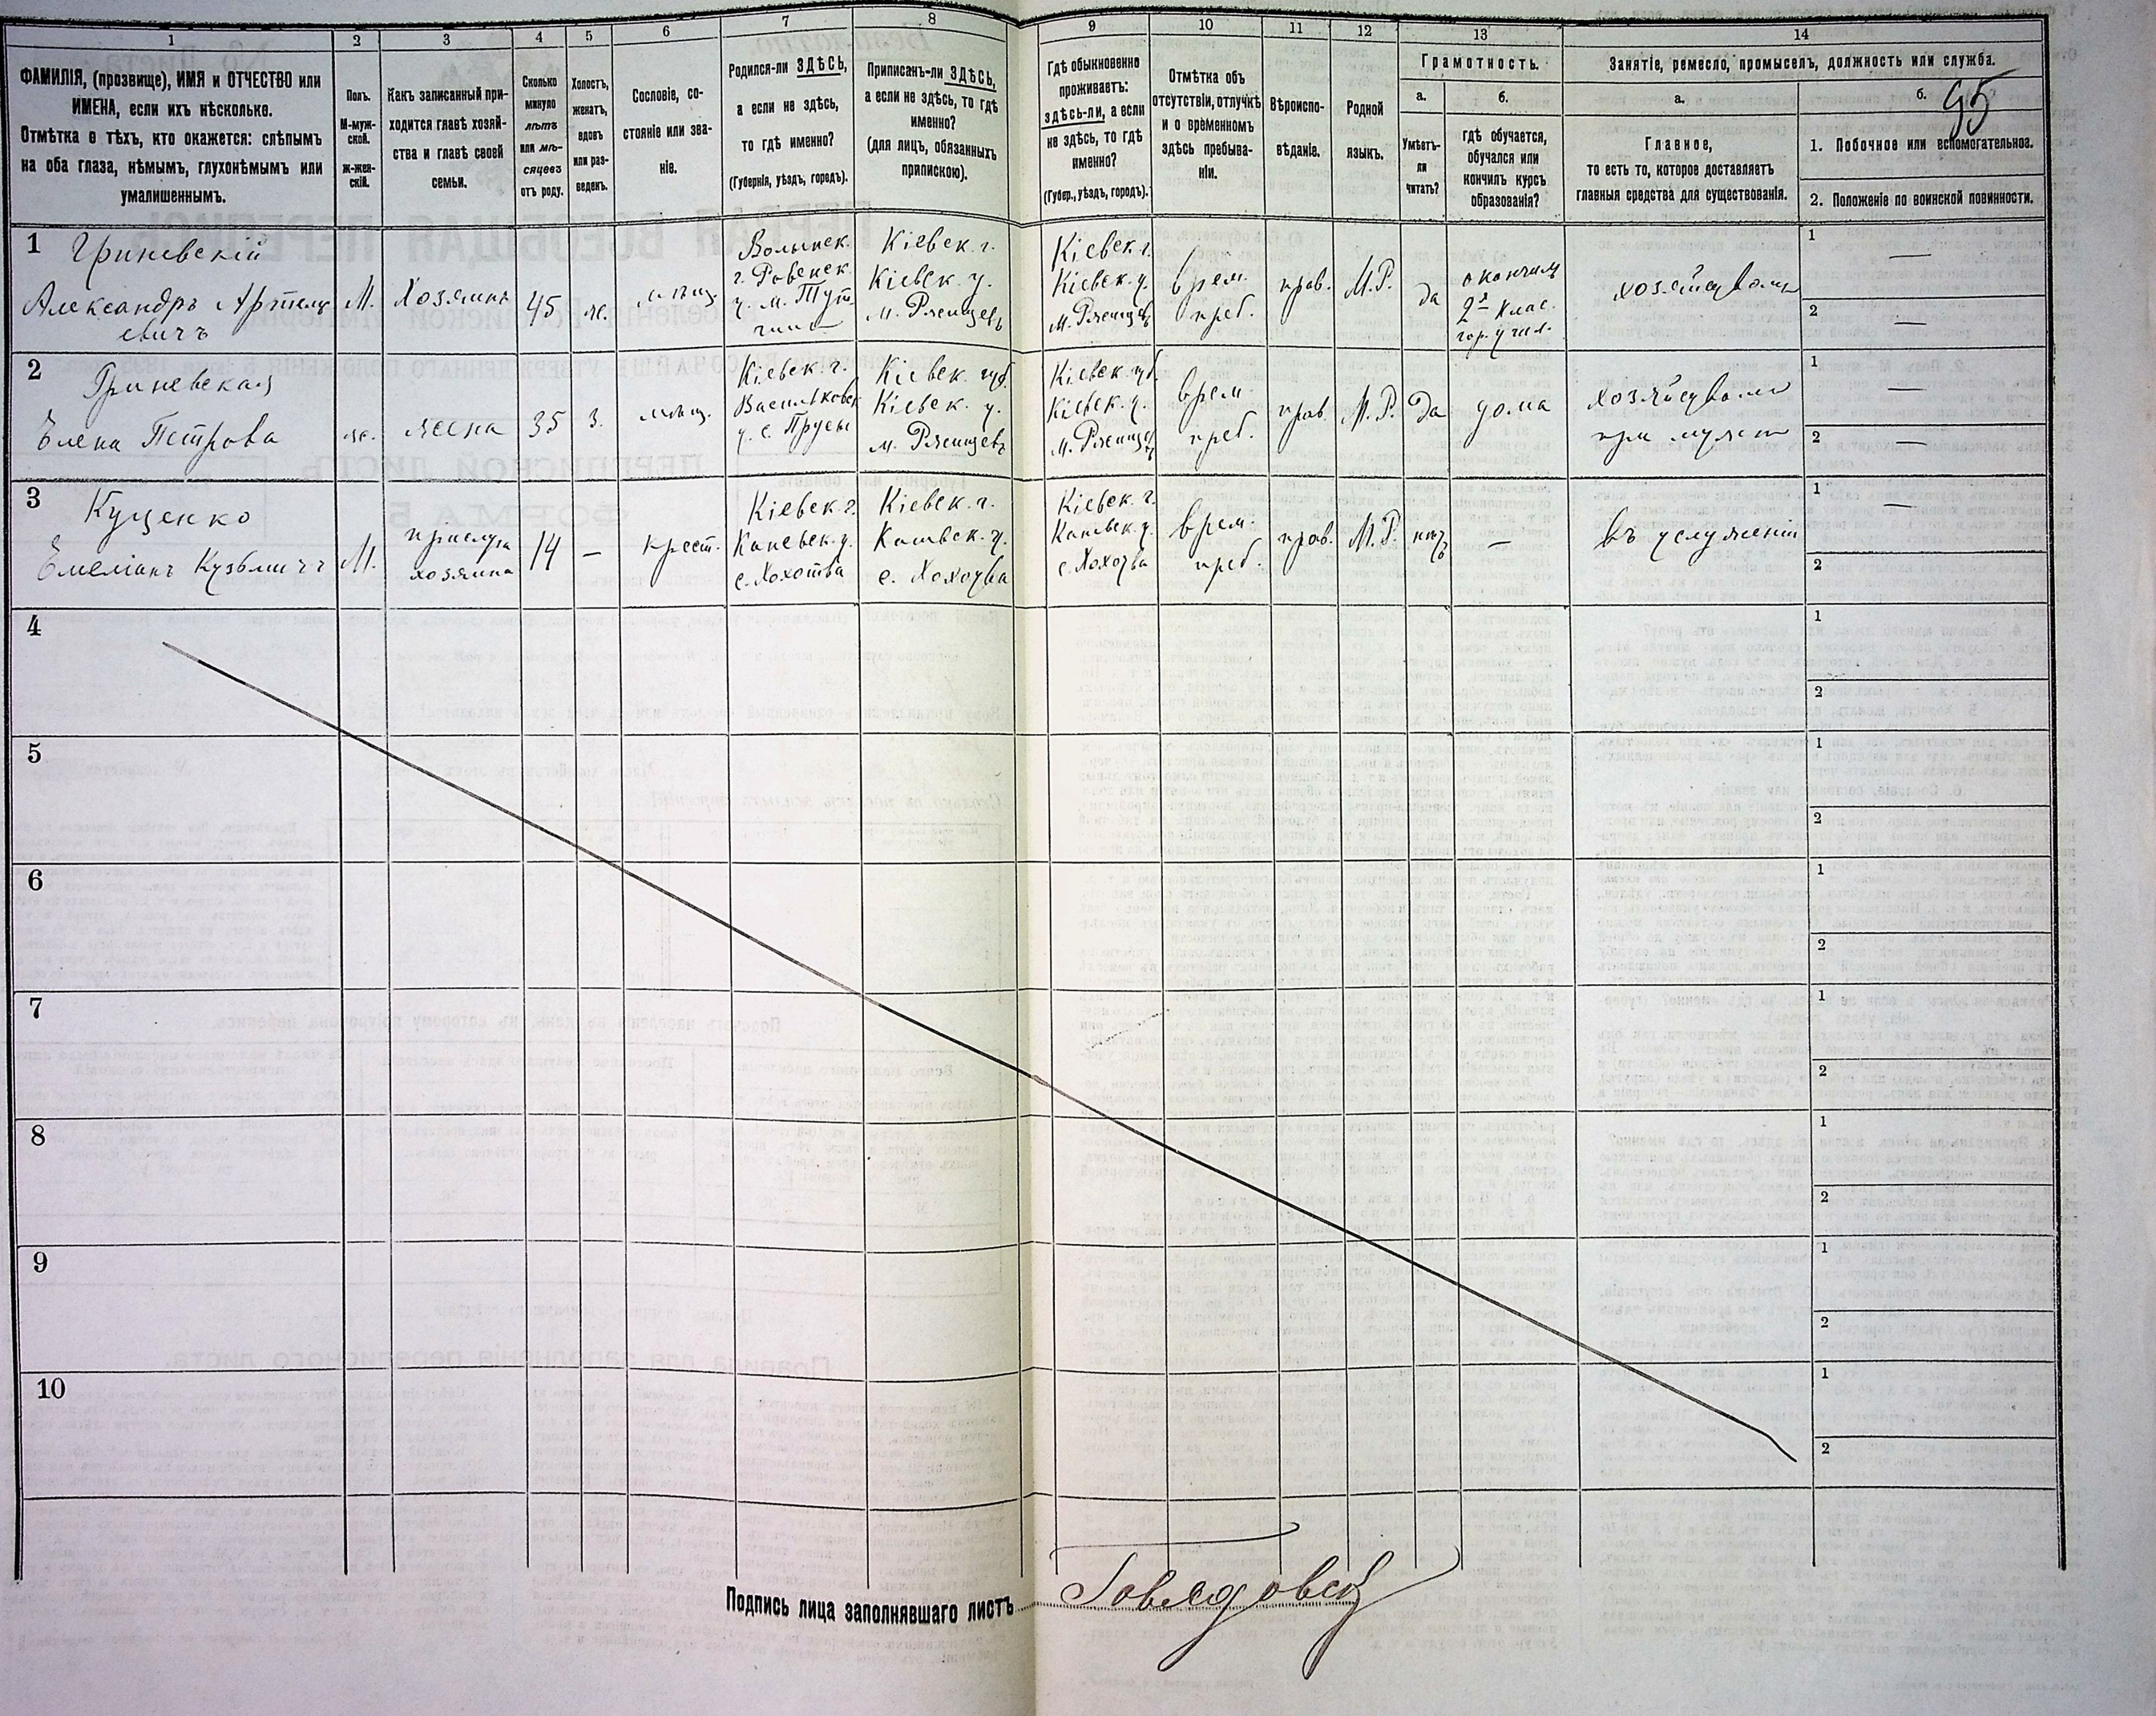 1
2
3
4
5
6
7
8
9
10
11
12
13
14
ФАМИЛІЯ, (прозвище), ИМЯ и ОТЧЕСТВО или
ИМЕНА, если ихъ нѣсколько.
Отмѣтка о тѣхъ, кто окажется: слѣпымъ
на оба глаза, нѣмымъ, глухонѣмымъ или
умалишеннымъ.
Полъ.
М-муж-
ской.
ж-жен-
скій.
Какъ записанный при-
ходится главѣ хозяй-
ства и главѣ своей
семьи.
Сколько
минуло
лѣтъ
или мѣ-
сяцевъ
отъ роду.
Холостъ,
женатъ,
вдовъ
или раз-
веденъ.
Сословіе, со-
стояніе или зва-
ніе.
Родился-ли ЗДѢСЬ,
а если не здѣсь,
то гдѣ именно?
(Губернія, уѣздъ, городъ).
Приписанъ-ли ЗДѢСЬ,
а если не здѣсь, то гдѣ
именно?
(для лицъ, обязанныхъ
припискою).
Гдѣ обыкновенно
проживаетъ:
здѣсь-ли, а если
не здѣсь, то гдѣ
именно?
(Губер., уѣздъ, городъ).
Отмѣтка объ
отсутствіи, отлучкѣ
и о временномъ
здѣсь пребыва-
ніи.
Вѣроиспо-
вѣданіе.
Родной
языкъ.
Грамотность.
а.
Умѣетъ-
ли
читать?
б.
гдѣ обучается,
обучался или
кончилъ курсъ
образованія?
Занятіе, ремесло, промыселъ, должность или служба.
а.
Главное,
то есть то, которое доставляетъ
главныя средства для существованія.
б.
95
1. Побочное или вспомогательное.
2. Положеніе по воинской повинности.
1
Гриневскій
Александръ Артем
евичъ
М.
Хозяинъ
45
ж.
мѣщ.
Волынск.
г. Ровенск.
у. м. Тут
Кіевск. г.
Кіевск. у.
м. Ржищевъ
Кіевск. г.
Кіевск. у.
м. Ржищевъ
врем.
преб.
прав.
М.Р.
да
окончилъ
2х клас.
гор. учил.
1 —
2 —
2
Гриневская
Елена Петрова
ж.
жена
35
з.
мѣщ.
Кіевск. г.
Васильковск
у. с. Прусы
Кіевск. губ.
Кіевск. у.
м. Ржищевъ
Кіевск. губ.
Кіевск. у.
м. Ржищевъ
врем.
преб.
прав.
М.Р.
да
дома
при мужѣ
1 —
2 —
3
Куценко
Емеліанъ Кузьмичъ
М.
прислуга
хозяина
14
—
крест.
Кіевск. г.
Каневск. у.
с. Хохотва
Кіевск. г.
Каневск. у.
с. Хохотва
Кіевск. г.
Каневск. у.
с. Хохотва
врем.
преб.
прав.
М.Р.
нѣтъ
—
въ услуженіи
1 —
2
4
1
2
5
1
2
6
1
2
7
1
2
8
1
2
9
1
2
10
1
2
Подпись лица заполнявшаго листъ